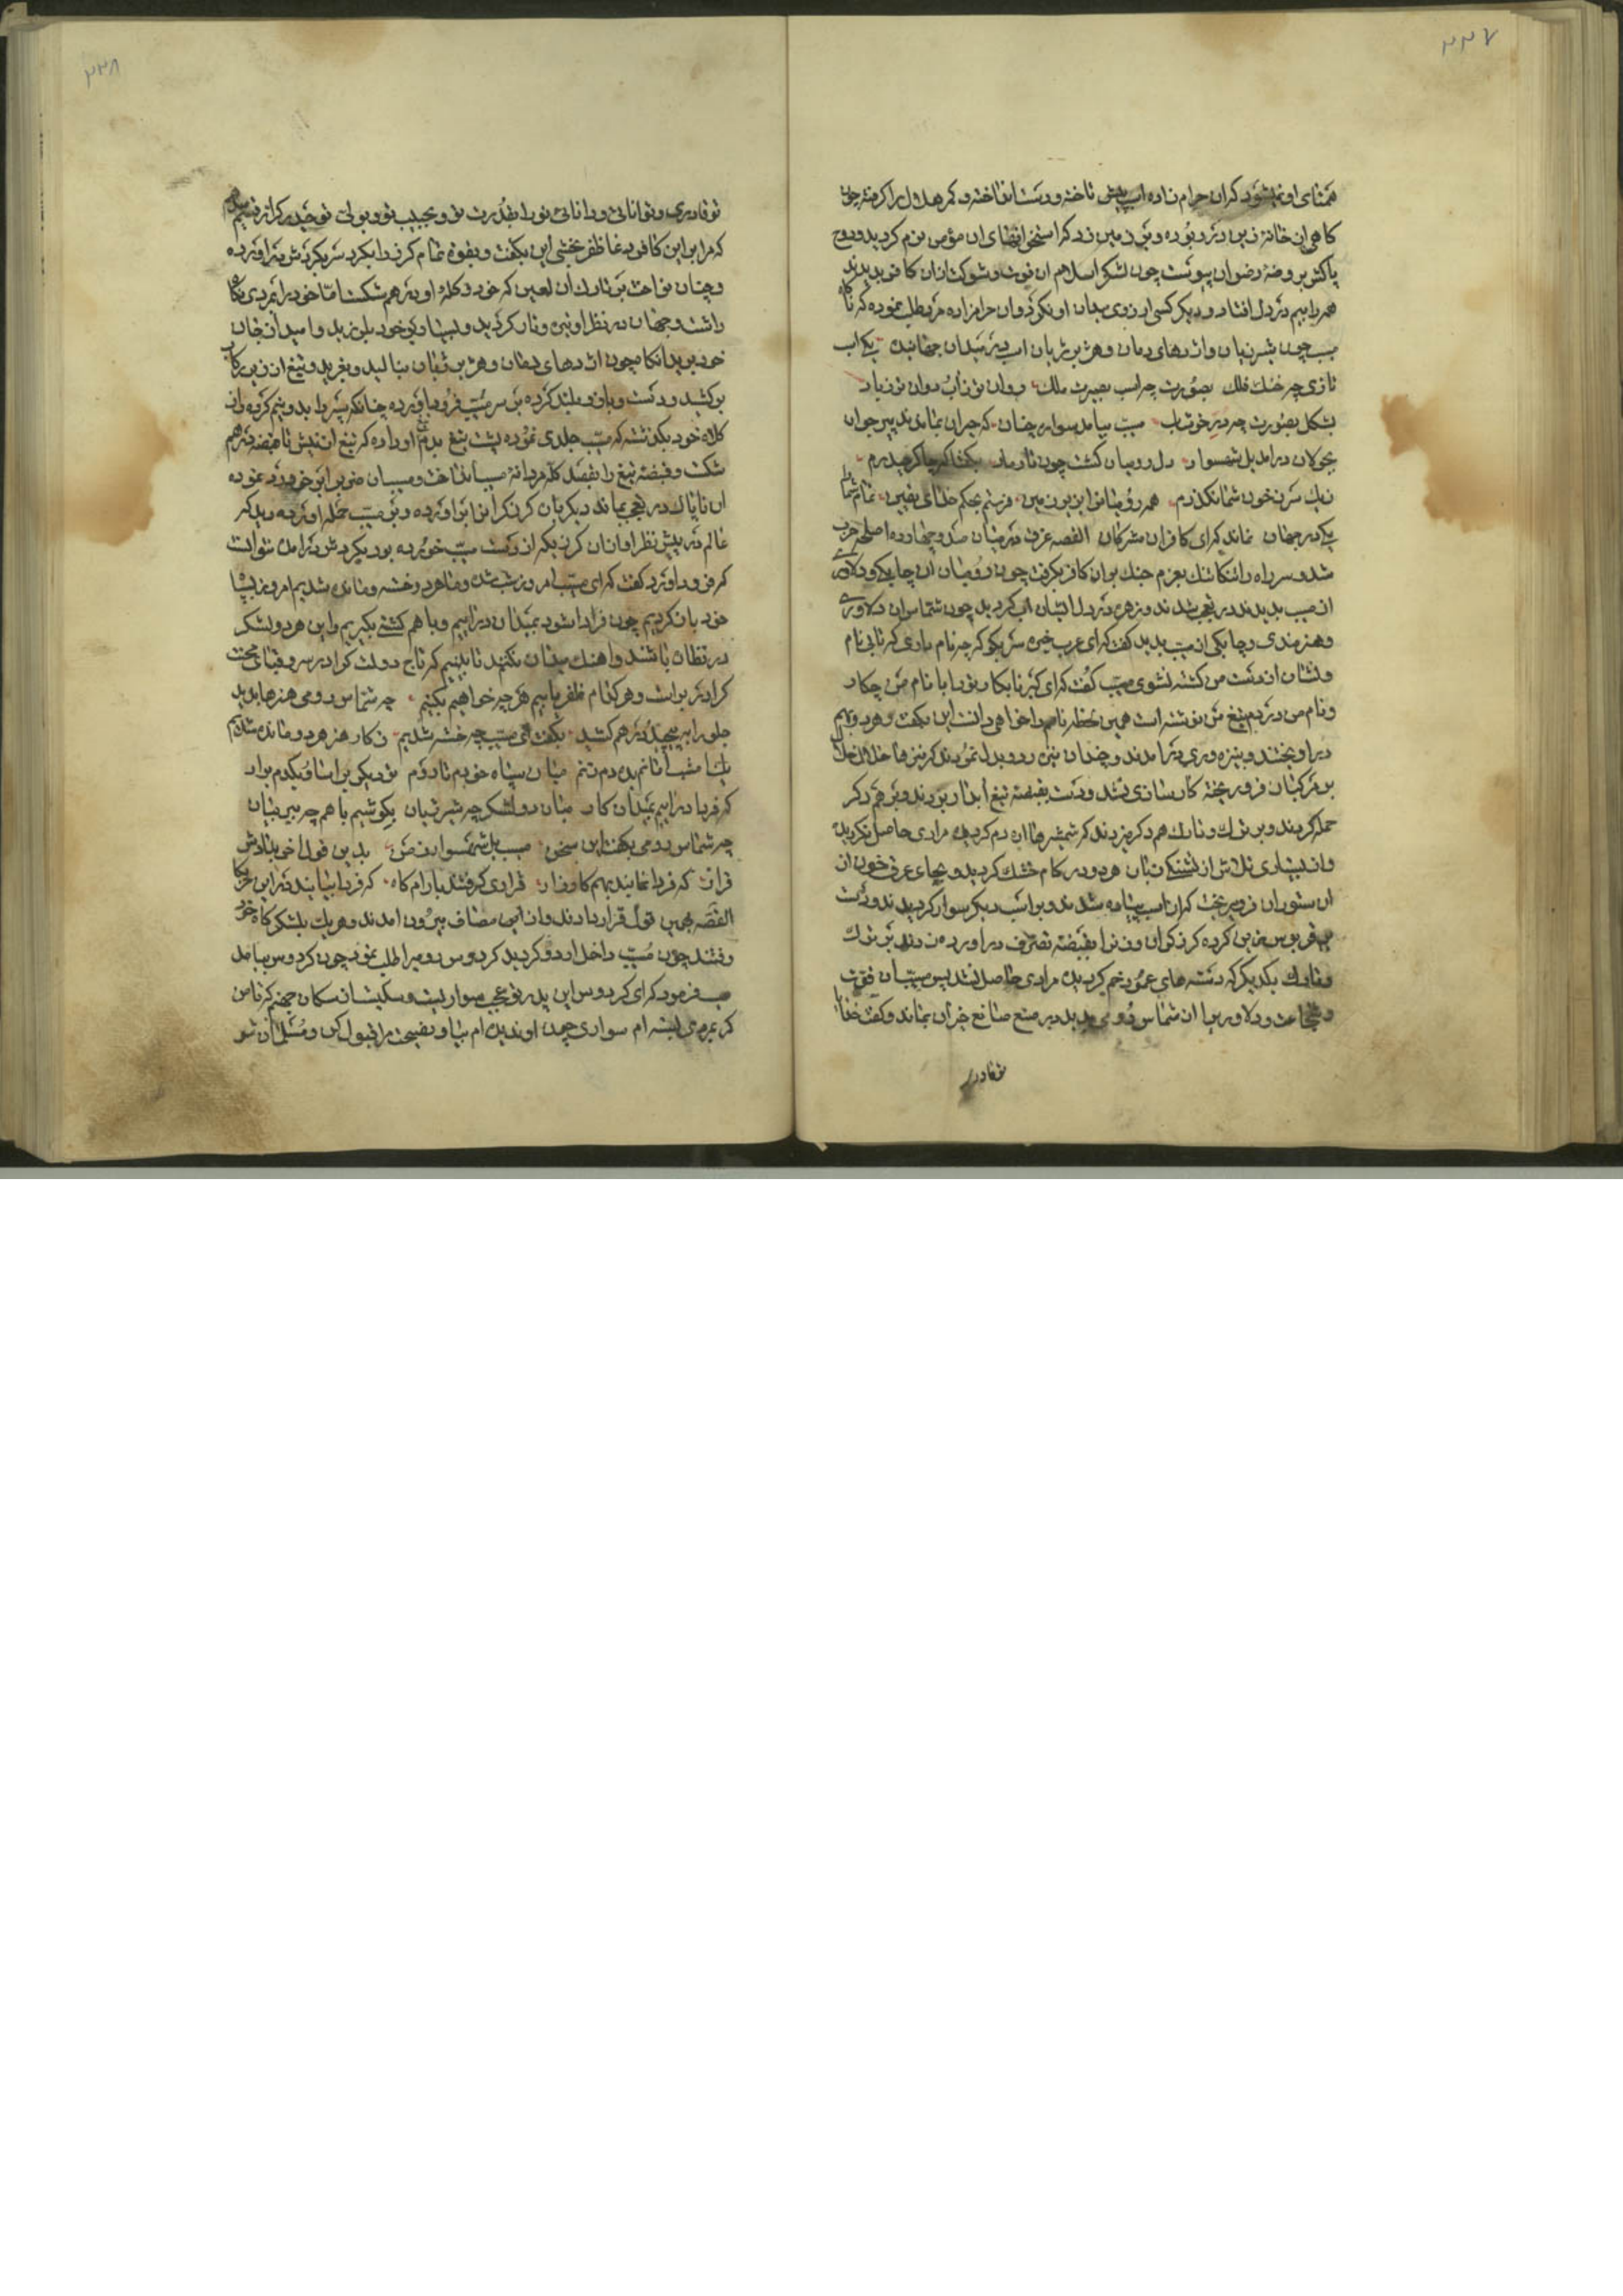 ۲۲۷
همتای او نمیشود که ان حرام زاده اسب پیش تاخته و دست انداخته و کمر هلال را گرفته چون
کاهی از خانه زین در ربوده و بر زمین زد که استخوانهای ان مؤمن نرم کردید و روح
پاکش بروضه رضوان پیوست چون لشکر اسلام ان قوت و شوکت از ان کافر بدیدند
همه را بیم در دل افتاد و دیکر کسی ارزوی میدان او نکرد و ان حرامزاده مرد طلب نموده که ناکاه
مسیب چون شیر ژیان و اژدهای دمان و هژبر ژیان اسب در میدان جهانید یکی اسب
تازی چه خنک فلک بصورت چه اسب بصیرت ملک روان تر ز آب دوان تر ز باد
بشکل بصورت چه در خوشاب مسیب بیامد سوار چنان که حیران بماندند پیر و جوان
بجولان درامد یل شهسوار دل رومیان کشت چون تار مار بکفتا که من چاکر حیدرم
ز یک سر ز خون شما نکذرم همه رومیانرا برین زمین فرستم بحکم خدای یقین تمام شما
یکی در جهان نماند که ای کافران مشرکان القصه غرق در میان صد و چهارده اصلحه حرب
شد و سر راه را تنکاتنک بعزم جنک بر ان کافر بکرفت چون رومیان ان چابکی و دلاوری
از مسیب بدیدند در تعجب شدند و زهره در دل ایشان اب کردید چون شماس ان دلاوری
و هنرمندی و چابکی از مسیب بدید کفت که ای عرب خیره سر بکو که چه نام داری که تا بی نام
و نشان از دست من کشته نشوی مسیب کفت که ای کبر نابکار ترا با نام من چکار
و نام من در دم تیغ من نوشته است همین لحظه نام مرا خواهی دانست این بکفت و هر دو بهم
در اویختند و بنیزه وری درامدند و چندان نیزه رد و بدل نمودند که نیزها خلال خلال
بر مرکبان فرو ریخته کارسازی نشد و دست بقبضه تیغ ابدار بردند و بر هم دکر
حمله کردند و بر ترک و تارک هم دکر میزدند که شمشیرها اره دم کردید و مرادی حاصل نکردید
و از بسیاری تلاش از تشنکی زبان هر دو در کام خشک کردید و بجای عرق خون از
ان ستوران فرو میریخت که از اسب پیاده شدند و بر اسب دیکر سوار کردیدند و دست
بر قربوس زین کرده کرز کران وزن را بقبضه تصرف در اورده زدند بر ترک
و تارک یکدیکر که دسته های عمود خم کردید و مرادی حاصل نشد پس مسیب ان قوت
و شجاعت و دلاوریرا از شماس رومی بدید در صنع صانع حیران بماند و کفت خدایا
تو قادری
۲۲۸
تو قادری و توانائی و دانائی تو را بقدرت تو و بحبیب تو و بولی تو حیدر کرار قسم میدهم
که مرا بر این کافر دغا ظفر بخشی این بکفت و بقوه تمام کرز را بکرد سر بکردش در اورده
و چنان نواخت بر تارک ان لعین که خود و کله او در هم شکست اما خود را بمردی نکاه
داشت و جهان در نظر او تیره و تار کردید و بسیار بر خود بلرزید و امید از جان
خود برید انکاه چون اژدهای دمان و هژبر ژیان بنالید و بغرید و تیغ از زیر رکاب
برکشید و دست و بازو بلند کرده بر سر مسیب فرود اورده چنانکه سپر را بدو نیم کرده و از
کلاه خود بکذشته که مسیب جلدی نموده پشت تیغ بدم تیغ او داده که تیغ از نیش تا قبضه در هم
شکست و قبضه تیغ را بقصد کله مردانه مسیب انداخت و مسیب ان ضرب را بر خود رد نموده
ان ناپاک در تعجب بماند دیکر بار کرز کران را بر اورده و بر مسیب حمله اورده و دید که
عالم در پیش نظر او از ان کرز یکه از دست مسیب خورده بود بکردش درامده نتوانست
که فرود اورد کفت که ای مسیب امروز شب شد و ما هر دو خسته و مانده شدیم امروز بیا
خود باز کردیم چون فردا شود بمیدان در اییم و با هم کشتی بکیریم و این هر دو لشکر
در نظاره باشند و اهنک میدان نکنند تا ببینیم که تاج دولت کرا در سر و قبای محنت
کرا در بر است و هر کدام ظفر یابیم هر چه خواهیم بکنیم چه شماس رومی هنرها بدید
جلو را بپیچید و در هم کشید بکفت ای مسیب چه خسته شدیم ز کار هنر هر دو مانده شدیم
یک امشب امانم بده دم زنم میان سپاه خودم تا روم تو دیکر بر اسا و یکدم برار
که فردا در اییم بمیدان کار میان دو لشکر چه شیر ژیان بکوشیم با هم چه ببر بیان
چه شماس رومی بکفت این سخن مسیب یل شهسوار زمن بدین قول اخر بدادش
قرار که فردا نمایند بهم کارزار قراری کرفتند بارام کاه که فردا بیایند در این حربکاه
القصه بهمین قول قرار دادند و از این مصاف بیرون امدند و هر یک بلشکرکاه خود
رفتند چون مسیب داخل اردو کردید کردوس رومیرا طلب نمود چون کردوس بیامد
مسیب فرمود که ای کردوس این پدر تو عجب سواریست و سکیست از سکان جهنم که تا من
کمر مردی بسته ام سواری چون او ندیده ام بیا و نصیحت مرا قبول کن و مسلمان شو